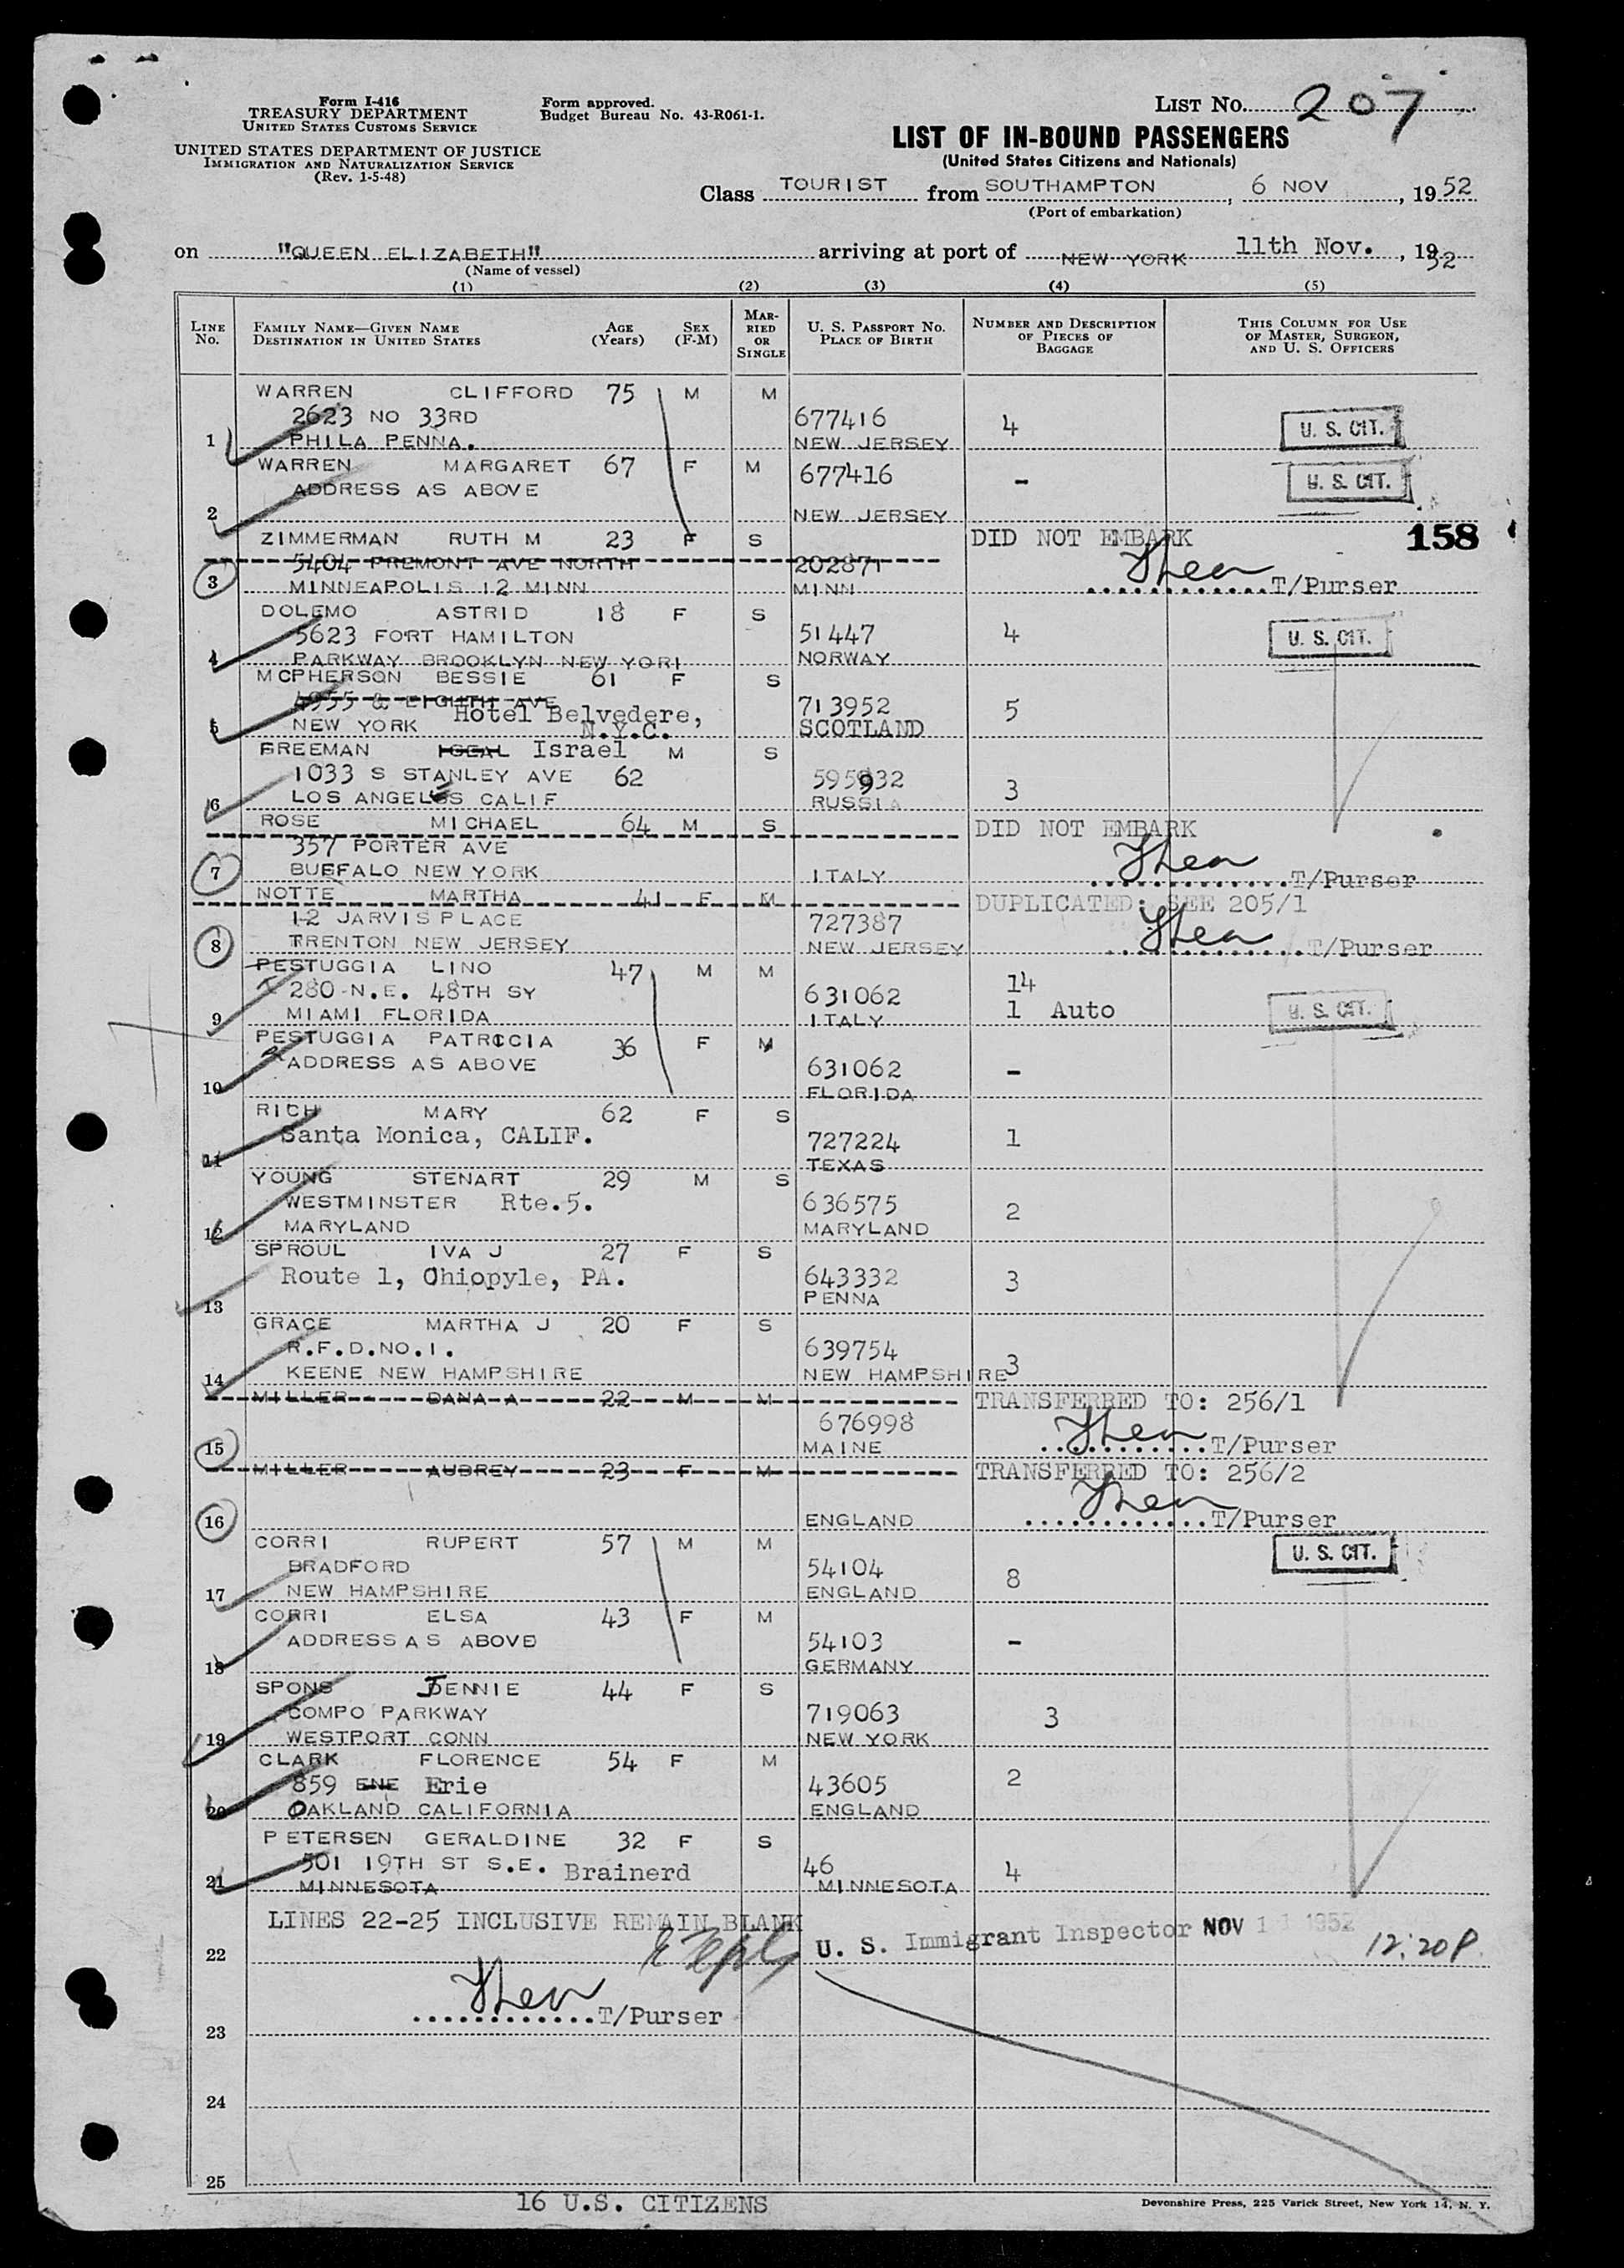 Form I-416
TREASURY DEPARTMENT
UNITED STATES CUSTOMS SERVICE
UNITED STATES DEPARTMENT OF JUSTICE
IMMIGRATION AND NATURALIZATION SERVICE
(Rev. 1-5-48)
Form approved.
Budget Bureau No. 43-R061-1.
LIST No. 207
LIST OF IN-BOUND PASSENGERS
(United States Citizens and Nationals)
Class TOURIST from SOUTHAMPTON, 6 NOV, 1952
(Port of embarkation)
on "QUEEN ELIZABETH" arriving at port of NEW YORK 11th Nov., 1952
(Name of vessel)
(1) (2) (3) (4) (5)
LINE No. FAMILY NAME—GIVEN NAME DESTINATION IN UNITED STATES AGE (Years) SEX (F-M) MARRIED OR SINGLE U. S. PASSPORT NO. PLACE OF BIRTH NUMBER AND DESCRIPTION OF PIECES OF BAGGAGE THIS COLUMN FOR USE OF MASTER, SURGEON, AND U. S. OFFICERS
WARREN CLIFFORD 75 M M
2623 NO 33RD 677416 4 U. S. CIT.
1 PHILA PENNA. NEW JERSEY
WARREN MARGARET 67 F M 677416 - U. S. CIT.
ADDRESS AS ABOVE
2 NEW JERSEY
ZIMMERMAN RUTH M 23 F S DID NOT EMBARK 158
5404 FREMONT AVE NORTH 202871
3 MINNEAPOLIS 12 MINN MINN T/Purser
DOLEMO ASTRID 18 F S
5623 FORT HAMILTON 51447 4 U. S. CIT.
4 PARKWAY BROOKLYN NEW YORI NORWAY
MCPHERSON BESSIE 61 F S
4955 & EIGHTH AVE 713952 5
Hotel Belvedere,
5 NEW YORK N.Y.C. SCOTLAND
FREEMAN IGEAL Israel M S
1033 S STANLEY AVE 62 595932 3
6 LOS ANGELES CALIF RUSSIA
ROSE MICHAEL 64 M S DID NOT EMBARK
357 PORTER AVE
7 BUFFALO NEW YORK ITALY T/Purser
NOTTE MARTHA 41 F M DUPLICATED: SEE 205/1
12 JARVIS PLACE 727387
8 TRENTON NEW JERSEY NEW JERSEY T/Purser
PESTUGGIA LINO 47 M M 14
280 N.E. 48TH SY 631062 1 Auto U. S. CIT.
9 MIAMI FLORIDA ITALY
PESTUGGIA PATRICIA 36 F M
ADDRESS AS ABOVE 631062 -
10 FLORIDA
RICH MARY 62 F S
Santa Monica, CALIF. 727224 1
11 TEXAS
YOUNG STENART 29 M S
WESTMINSTER Rte.5. 636575 2
12 MARYLAND MARYLAND
SPROUL IVA J 27 F S
Route 1, Ohiopyle, PA. 643332 3
13 PENNA
GRACE MARTHA J 20 F S
R.F.D.NO.1. 639754 3
14 KEENE NEW HAMPSHIRE NEW HAMPSHIRE
MILLER DANA A 22 M M TRANSFERRED TO: 256/1
676998
15 MAINE T/Purser
MILLER AUBREY 23 F M TRANSFERRED TO: 256/2
16 ENGLAND T/Purser
CORRI RUPERT 57 M M U. S. CIT.
BRADFORD 54104 8
17 NEW HAMPSHIRE ENGLAND
CORRI ELSA 43 F M
ADDRESS AS ABOVE 54103 -
18 GERMANY
SPONS JENNIE 44 F S
COMPO PARKWAY 719063 3
19 WESTPORT CONN NEW YORK
CLARK FLORENCE 54 F M
859 ENE Erie 43605 2
20 OAKLAND CALIFORNIA ENGLAND
PETERSEN GERALDINE 32 F S
501 19TH ST S.E. Brainerd 46 4
21 MINNESOTA MINNESOTA
LINES 22-25 INCLUSIVE REMAIN BLANK
22 U. S. Immigrant Inspector NOV 11 1952 12:20P.
T/Purser
23
24
25
16 U.S. CITIZENS
Devonshire Press, 225 Varick Street, New York 14, N. Y.